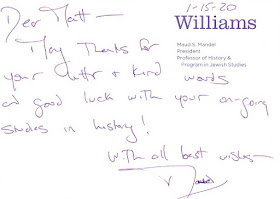 1-15-20
Williams
Maud S. Mandel
President
Professor of History &
Program in Jewish Studies
Dear Matt—
Many thanks for
your letter + kind words
and good luck with your on-going
studies in history!
With all best wishes—